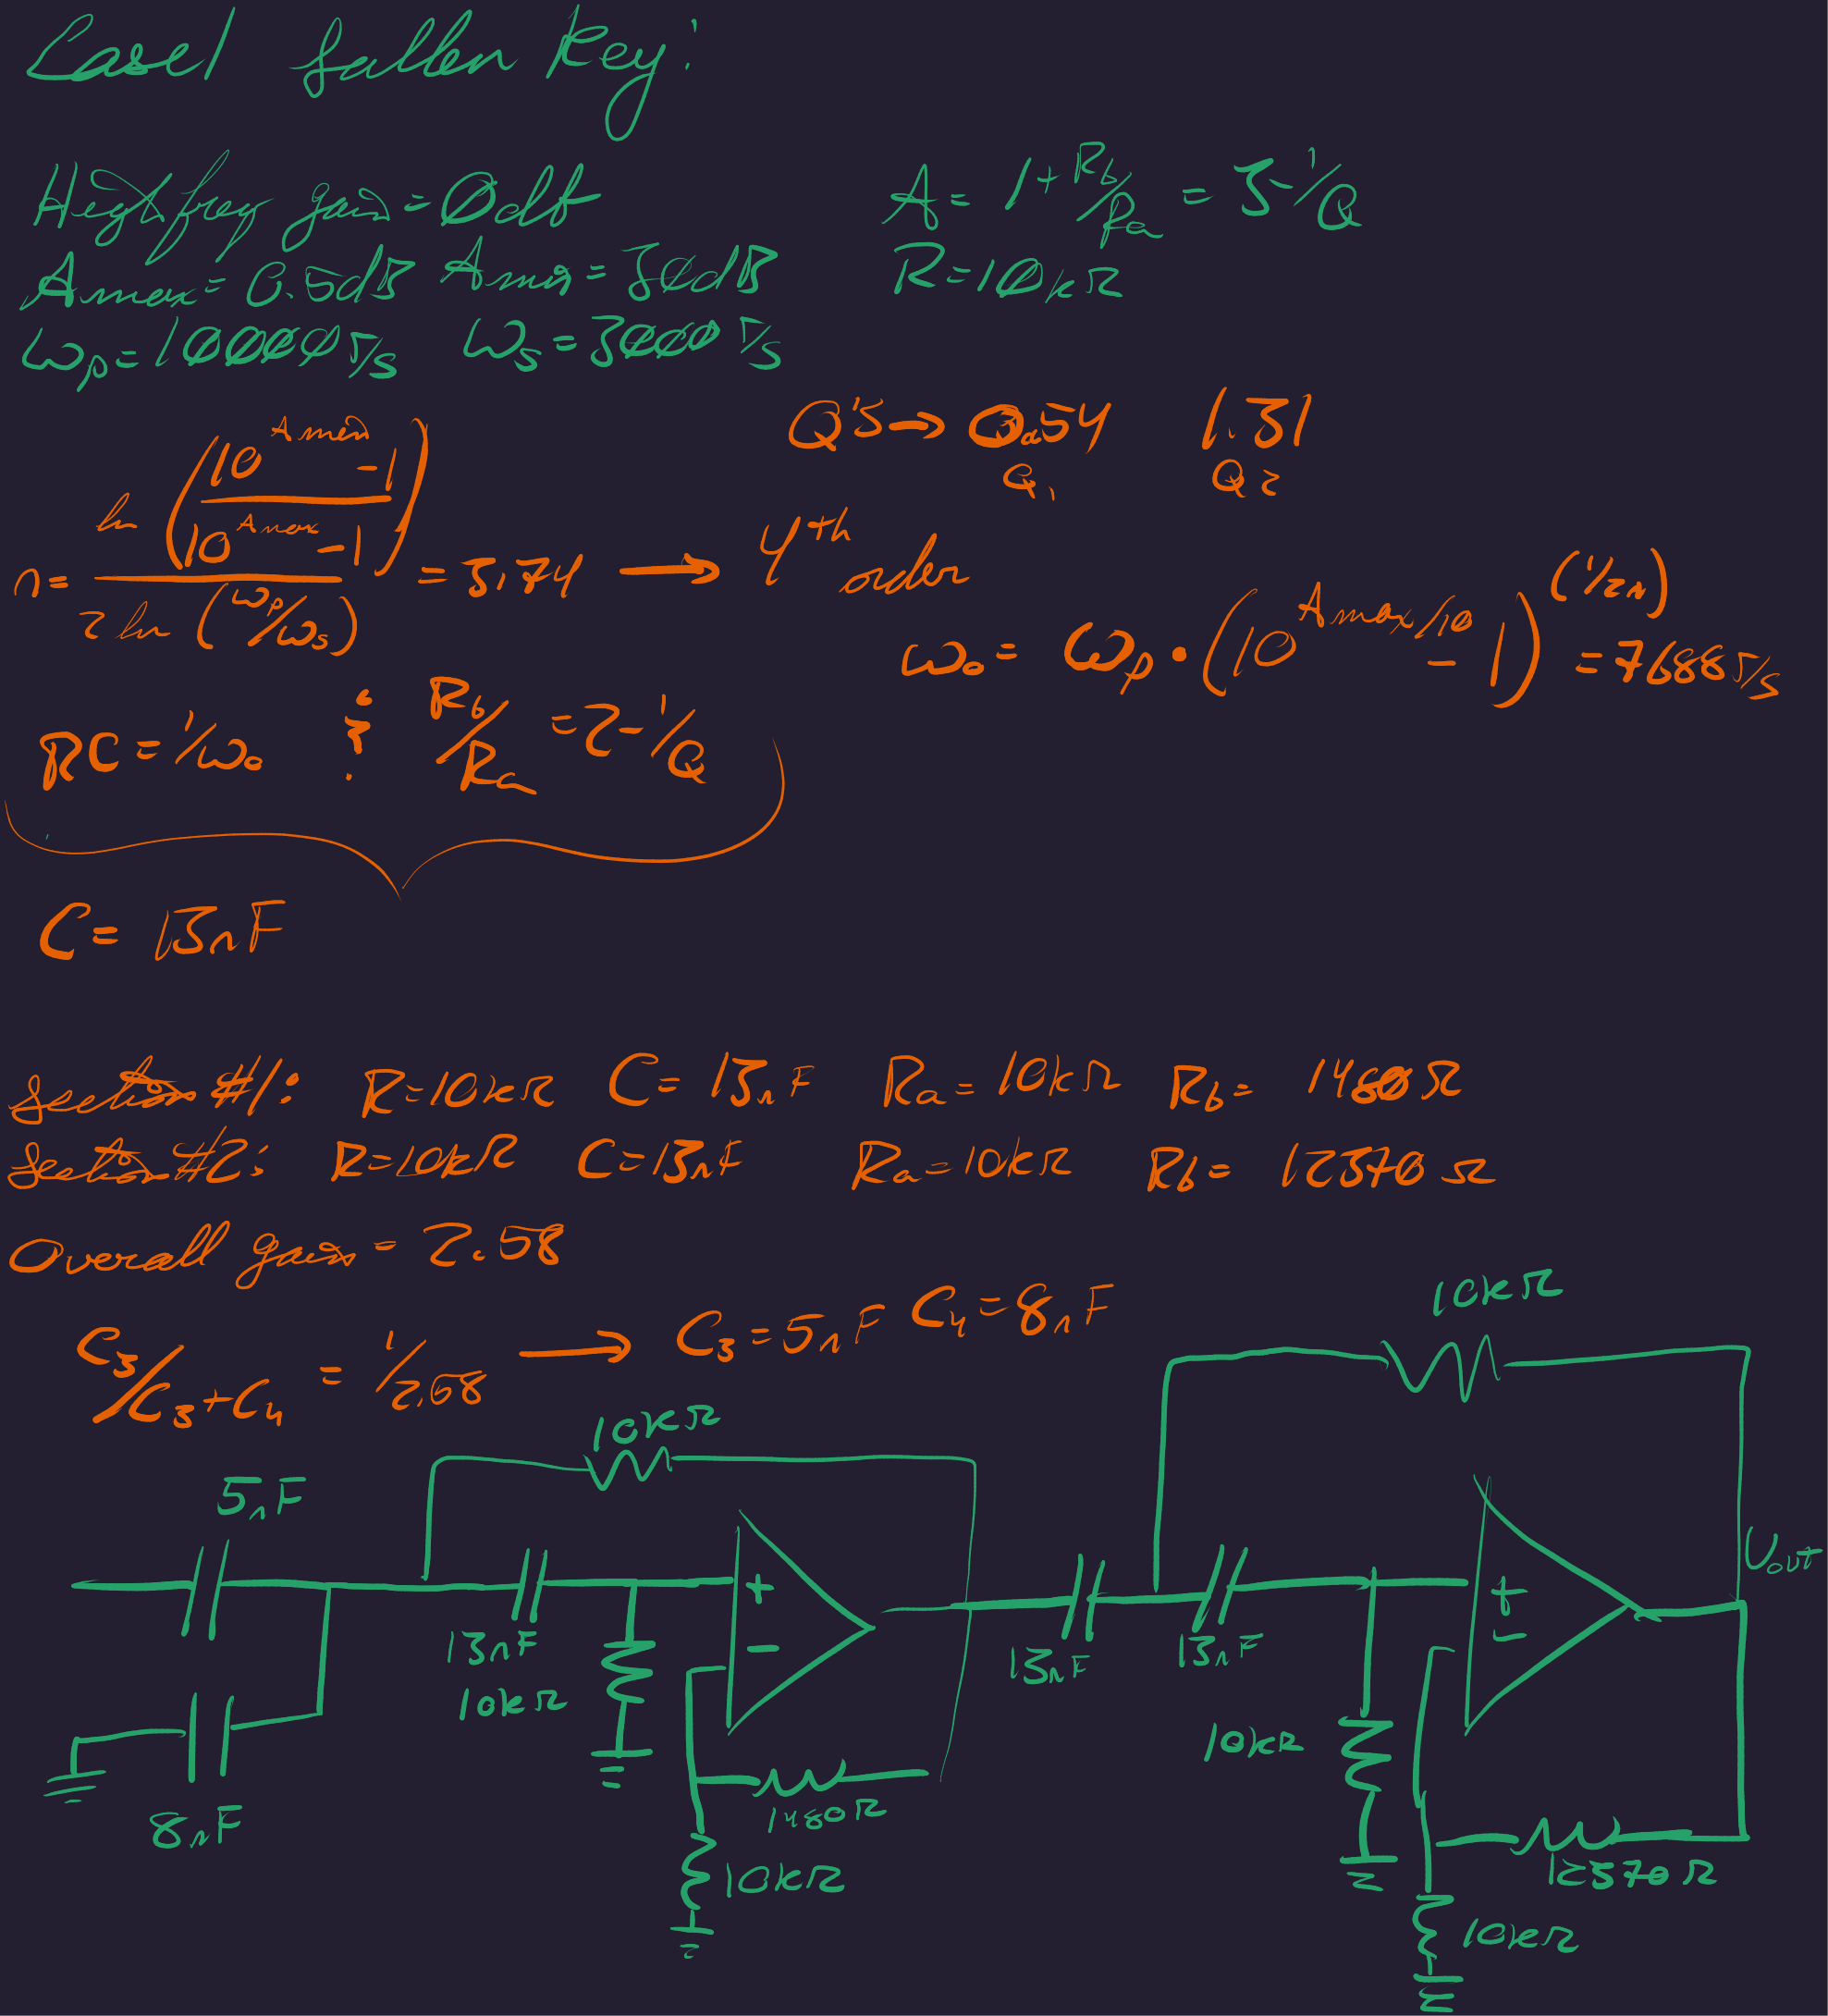 Case 1 Sallen Key:
High freq gain = 0dB
A = 1 + Rb/Ra = 3 - 1/Q
Amax = 0.5dB Amin = 30dB R = 10kΩ
ωp = 10000 r/s ωs = 3000 r/s
Q's → 0.54 1.31
Q1 Q2
n = ln((10^Amin - 1)/(10^Amax - 1)) / 2 ln(ωp/ωs) = 3.74 → 4th order
ω0 = ωp · (10^Amax/10 - 1)^(1/2n) = 7688 r/s
RC = 1/ω0 & Rb/Ra = 2 - 1/Q
C = 13nF
Section #1: R = 10kΩ C = 13nF Ra = 10kΩ Rb = 1480Ω
Section #2: R = 10kΩ C = 13nF Ra = 10kΩ Rb = 12370Ω
Overall gain = 2.58
C3/C3+C4 = 1/2.58 → C3 = 5nF C4 = 8nF
10kΩ
10kΩ
5nF
Vout
+
+
13nF
-
13nF
13nF
-
10kΩ
10kΩ
8nF
1480Ω
10kΩ
12370Ω
10kΩ